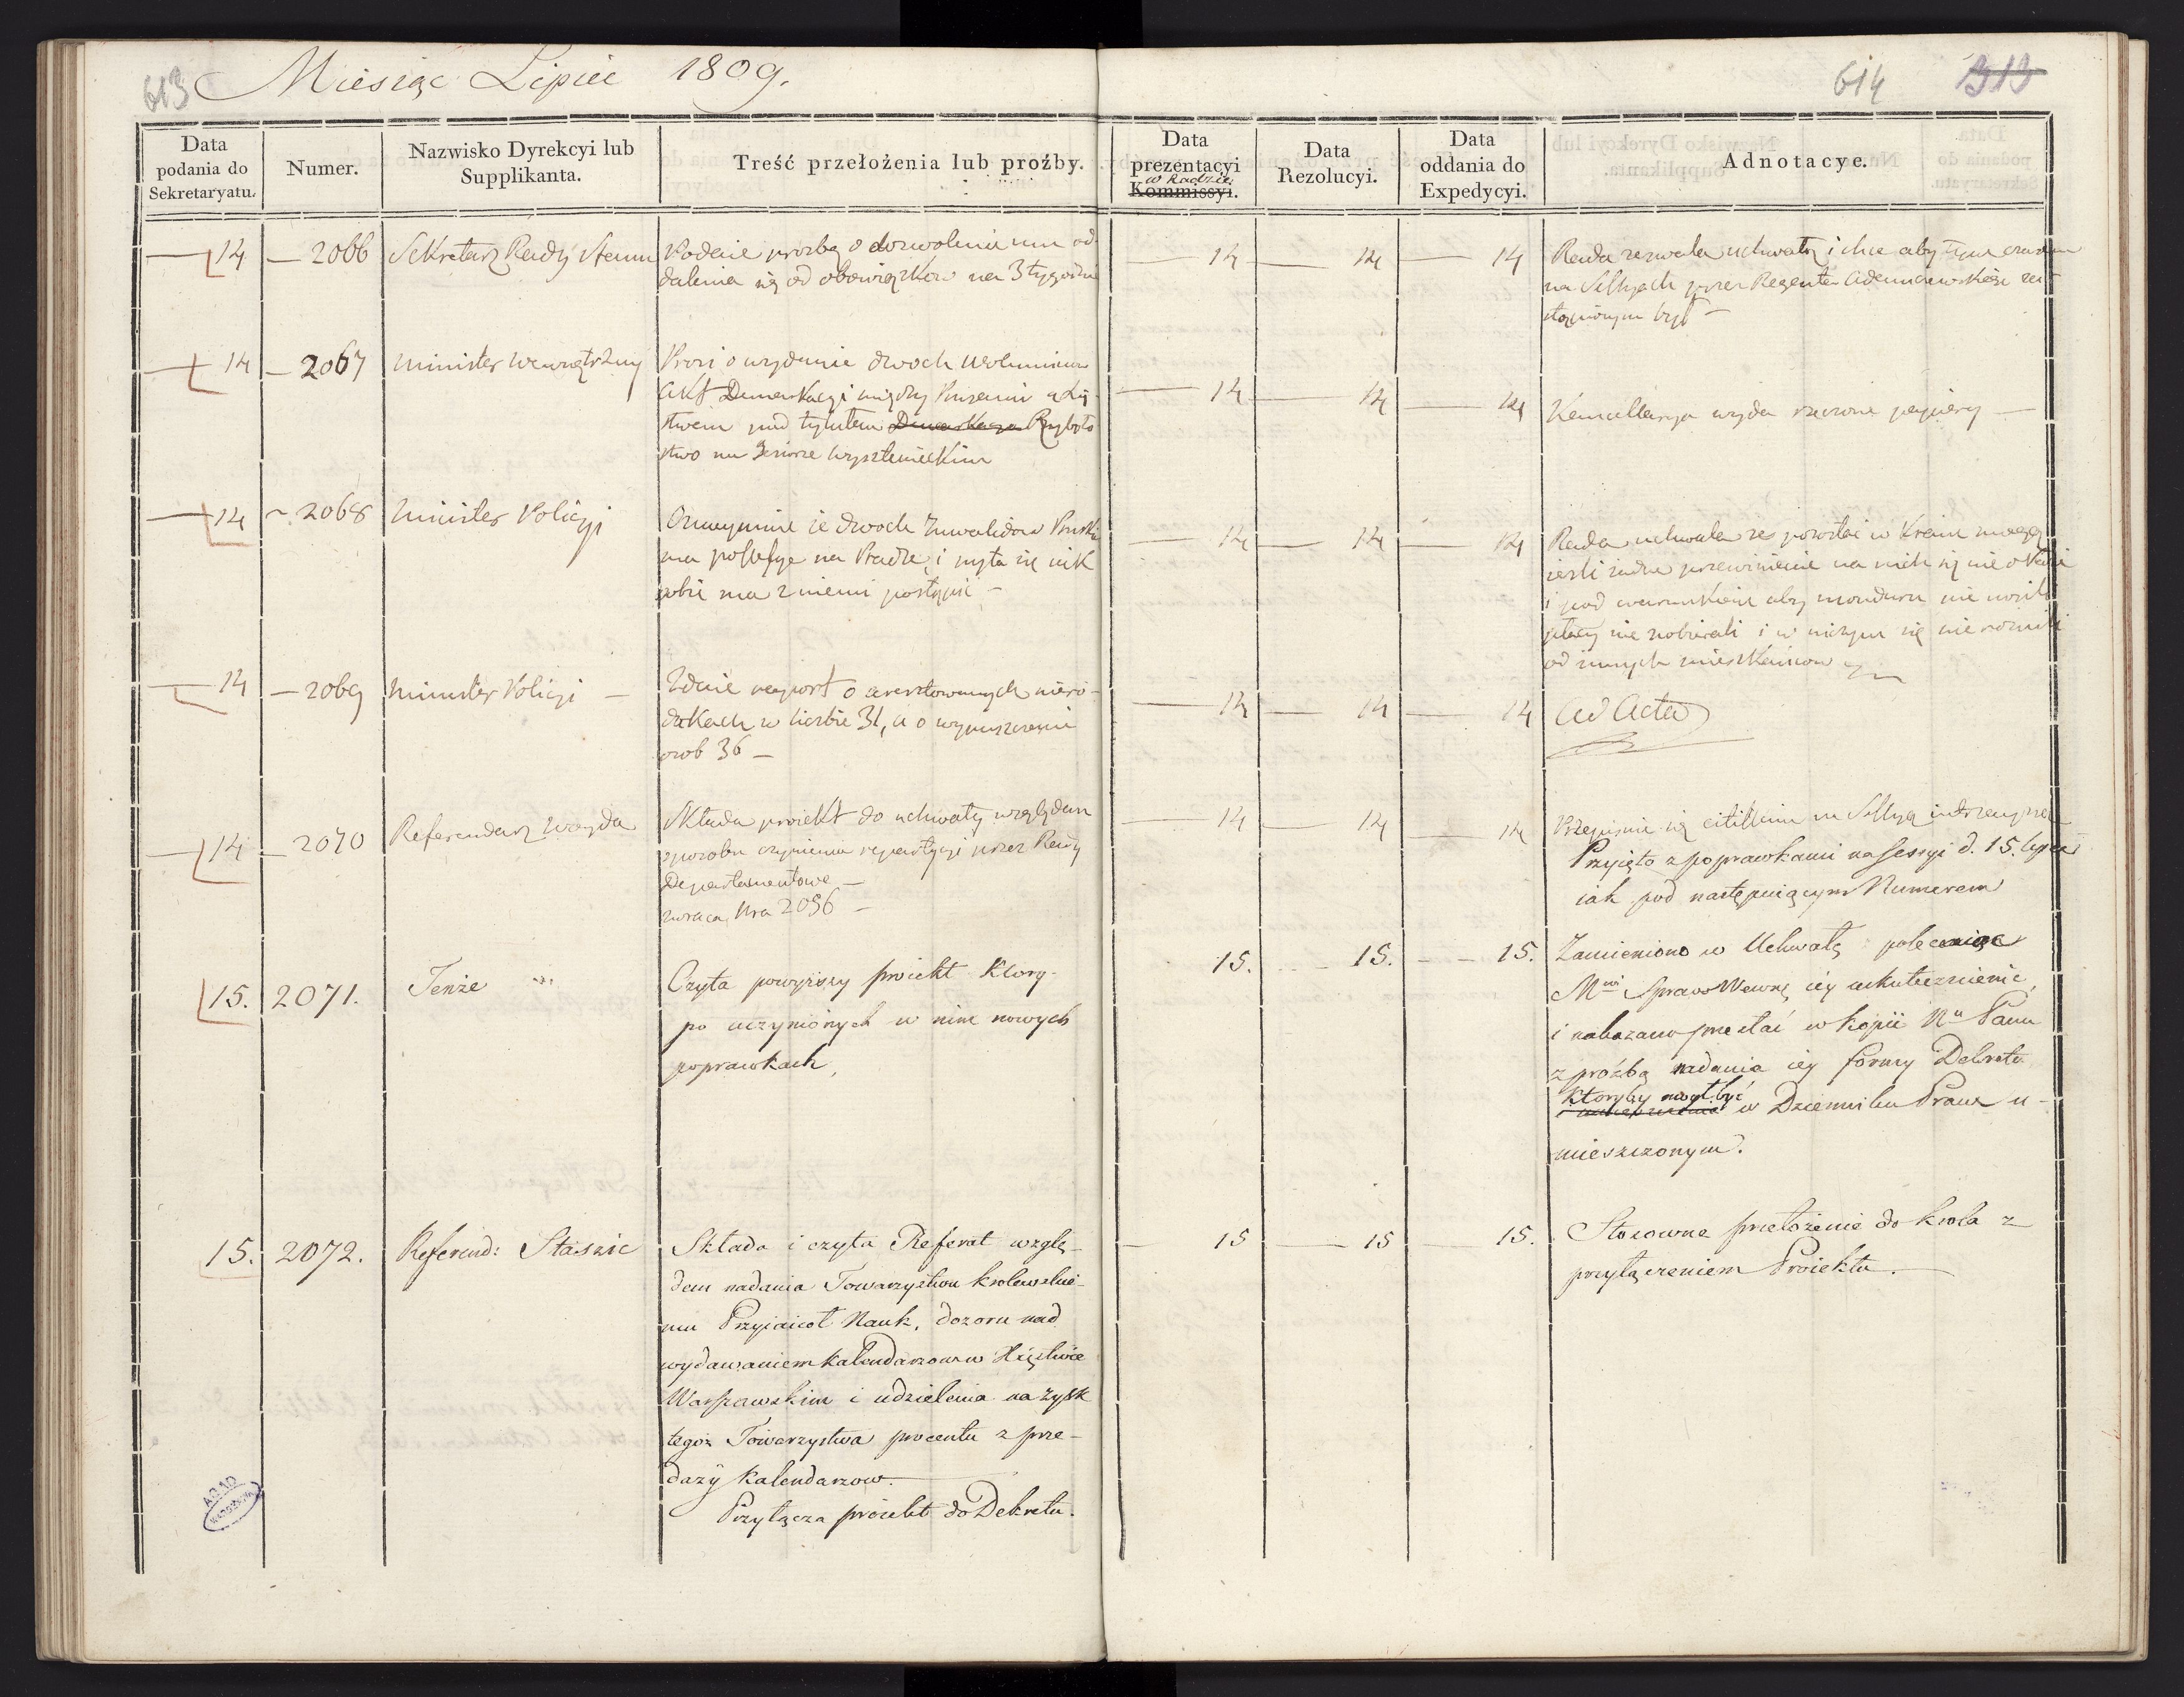 613 Miesiąc Lipiec 1809.
614 313
Data podania do Sekretaryatu.
Numer.
Nazwisko Dyrekcyi lub Supplikanta.
Treść przełożenia lub proźby.
Data prezentacyi w Radzie Kommissyi.
Data Rezolucyi.
Data oddania do Expedycyi.
Adnotacye.
14 — 2066 Sekretarz Rady
Podaie prozbę o dozwolenie mu od-
dalenia się od obowiązkow na 3 tygodnie
14 14 14
Rada zezwala uchwałą i chce aby tym czasem
na Sessyach przez Regenta za-
stąpionym był —
14 — 2067 Minister Wewnętrzny
Prosi o wydanie dwoch Woluminow
Akt Demarkacyi między Prusami a Xię-
stwem pod tytułem Demarkacya Rybołó
stwo na Jeziorze Wysztenieckim
14 14 14
Kancellarya wyda rzeczone papiery —
14 — 2068 Minister Policyi
Oznaymuie że dwoch Inwalidow Pruskich
ma possessye na Pradze, i pyta się iak
sobie ma z niemi postąpić —
14 14 14
Rada uchwala że pozostać w Kraiu mogą
ieśli żadne przewinienie na nich się nie okaże
i pod warunkiem aby munduru nie nosili
płacy nie pobierali i w niczym się nie roznili
od innych mieszkańcow
14 — 2069 Minister Policyi —
Zdaie raport o aresztowanych niero-
dakach w liczbie 31, a o wypuszczeniu
osob 36 —
14 14 14
Ad Acta
14 — 2070 Referendarz Woyda
Składa proiekt do uchwały względem
sposobu czynienia repartycyi przez Rady
Departamentowe —
zwraca Nra 2056 —
14 14 14
Przepisuie się citissime na Sessyą
Przyięto z poprawkami na Sessyi d. 15. lipca
iak pod następuiącym Numerem
15. 2071. Tenże
Czyta powyższy proiekt ktory
po uczynionych w nim nowych
poprawkach,
15. 15. 15.
Zamieniono w Uchwałę polecaiąc
Mwi Spraw Wewnę iey uskutecznienie,
i nakazano przesłać w kopii Nu Panu
z prożbą nadania iey formy Dekretu
ktoryby mogł być
w Dzienniku Praw u-
mieszczonym.
15. 2072. Referend: Staszic
Składa i czyta Referat wzglę-
dem nadania Towarzystwu krolewskie-
mu Przyiacioł Nauk, dozoru nad
wydawaniem kalendarzow w Xięstwie
Warszawskim i udzielenia na zysk
tegoż Towarzystwa procentu z prze-
daży kalendarzow.
Przyłącza proiekt do Dekretu.
15 15 15.
Stosowne przełożenie do krola z
przyłączeniem Proiektu.